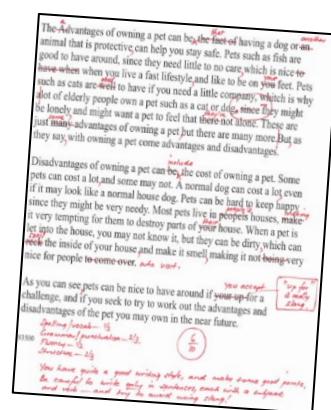 a that another
The Advantages of owning a pet can be, the fact of having a dog or an
animal that is protective, can help you stay safe. Pets such as fish are
good to have around, since they need little to no care, which is nice to
have when when you live a fast lifestyle, and like to be on you feet. Pets
such as cats are well to have if you need a little company, whitch is why
alot of elderly people own a pet such as a cat or dog, since they might
be lonely and might want a pet to feel that there not alone. These are
just many advantages of owning a pet, but there are many more. But as
they say, with owning a pet come advantages and disadvantages.
include
Disadvantages of owning a pet can be, the cost of owning a pet. Some
pets can cost a lot, and some may not. A normal dog can cost a lot, even
if it may look like a normal house dog. Pets can be hard to keep happy
since they might be very needy. Most pets live in peopels houses, make
it very tempting for them to destroy parts of your house. When a pet is
let into the house, you may not know it, but they can be dirty, which can
reck the inside of your house, and make it smell, making it not being very
nice for people to come over.
As you can see, pets can be nice to have around if your up for a
challenge, and if you seek to try to work out the advantages and
disadvantages of the pet you may own in the near future.
you accept
"up for" is only slang.
Spelling/vocab - 1/2
Grammar/punctuation - 2/3
Fluency - 1/2
Structure - 2/3
6
10
You have quite a good writing style, and make some good points.
Be careful to write only in sentences, each with a subject
and verb - and try to avoid using slang!